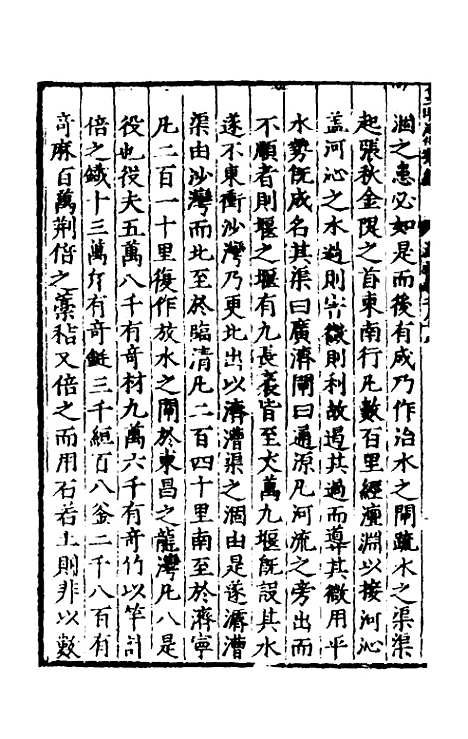 涸之患必如是而後有成乃作治水之閘疏水之渠渠
起張秋金隄之首東南行凡數百里經澶淵以接河沁
盖河沁之水過則害微則利故遏其過而導其微用平
水勢旣成名其渠曰廣濟閘曰通源凡河流之旁出而
不順者則堰之堰有九長袤皆至丈萬九堰旣設其水
遂不東衝沙灣乃更北出以濟漕渠之涸由是遂濬漕
渠由沙灣而北至於臨清凡二百四十里南至於濟寧
凡二百一十里復作放水之閘於東昌之龍灣凡八是
役也役夫五萬八千有奇材九萬六千有奇竹以竿計
倍之鐵十三萬斤有奇鋌三千絙百八釜二千八百有
奇麻百萬荆倍之藁秸又倍之而用石若土則非以數